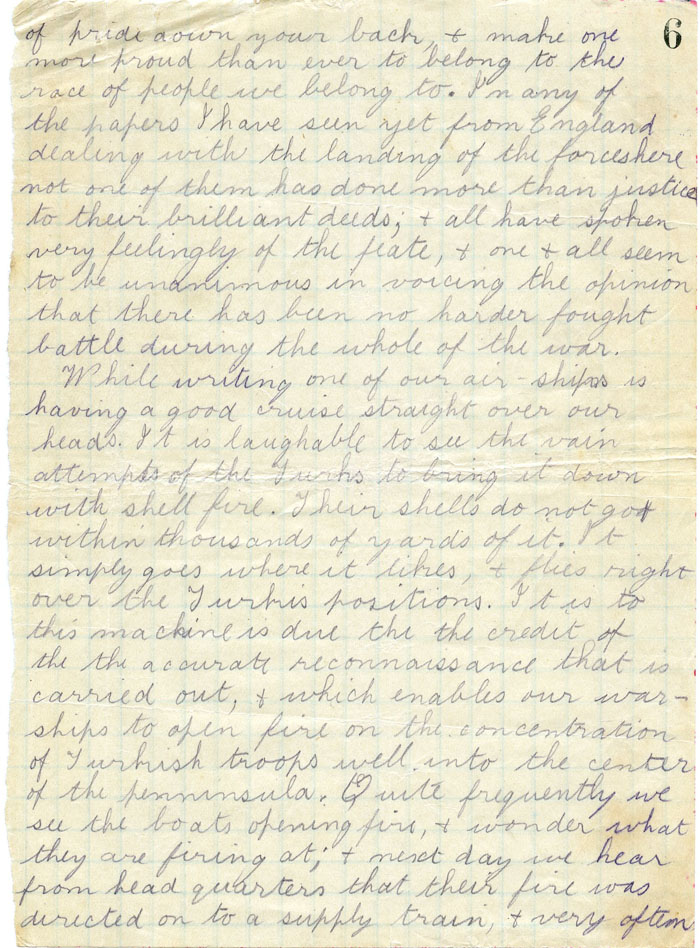 6
of pride down your back, & make one
more proud than ever to belong to the
race of people we belong to. In any of
the papers I have seen yet from England
dealing with the landing of the forces here
not one of them has done more than justice
to their brilliant deeds; & all have spoken
very feelingly of the feate, & one & all seem
to be unanimous in voicing the opinion
that there has been no harder fought
battle during the whole of the war.
While writing one of our air-ships is
having a good cruise straight over our
heads. It is laughable to see the vain
attempts of the Turks to bring it down
with shell fire. Their shells do not got
within thousands of yards of it. It
simply goes where it likes, & flies right
over the Turkis positions. It is to
this machine is due the the credit of
the the accurate reconnaissance that is
carried out, & which enables our war-
ships to open fire on the concentration
of Turkish troops well into the center
of the penninsula. Quite frequently we
see the boats opening fire, & wonder what
they are firing at; & next day we hear
from head quarters that their fire was
directed on to a supply train, & very often